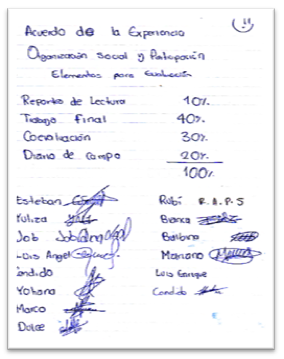 Acuerdo de la Experiencia
Organización Social y Participación
Elementos para Evaluación
Reportes de Lectura 10%
Trabajo Final 40%
Coevaluación 30%
Diario de Campo 20%
100%
Esteban
Yuliza
Job
Luis Angel
Candido
Yohana
Marco
Dulce
Rubí R.A.P.S
Bianca
Barbara
Mariano
Luis Enrique
Candido